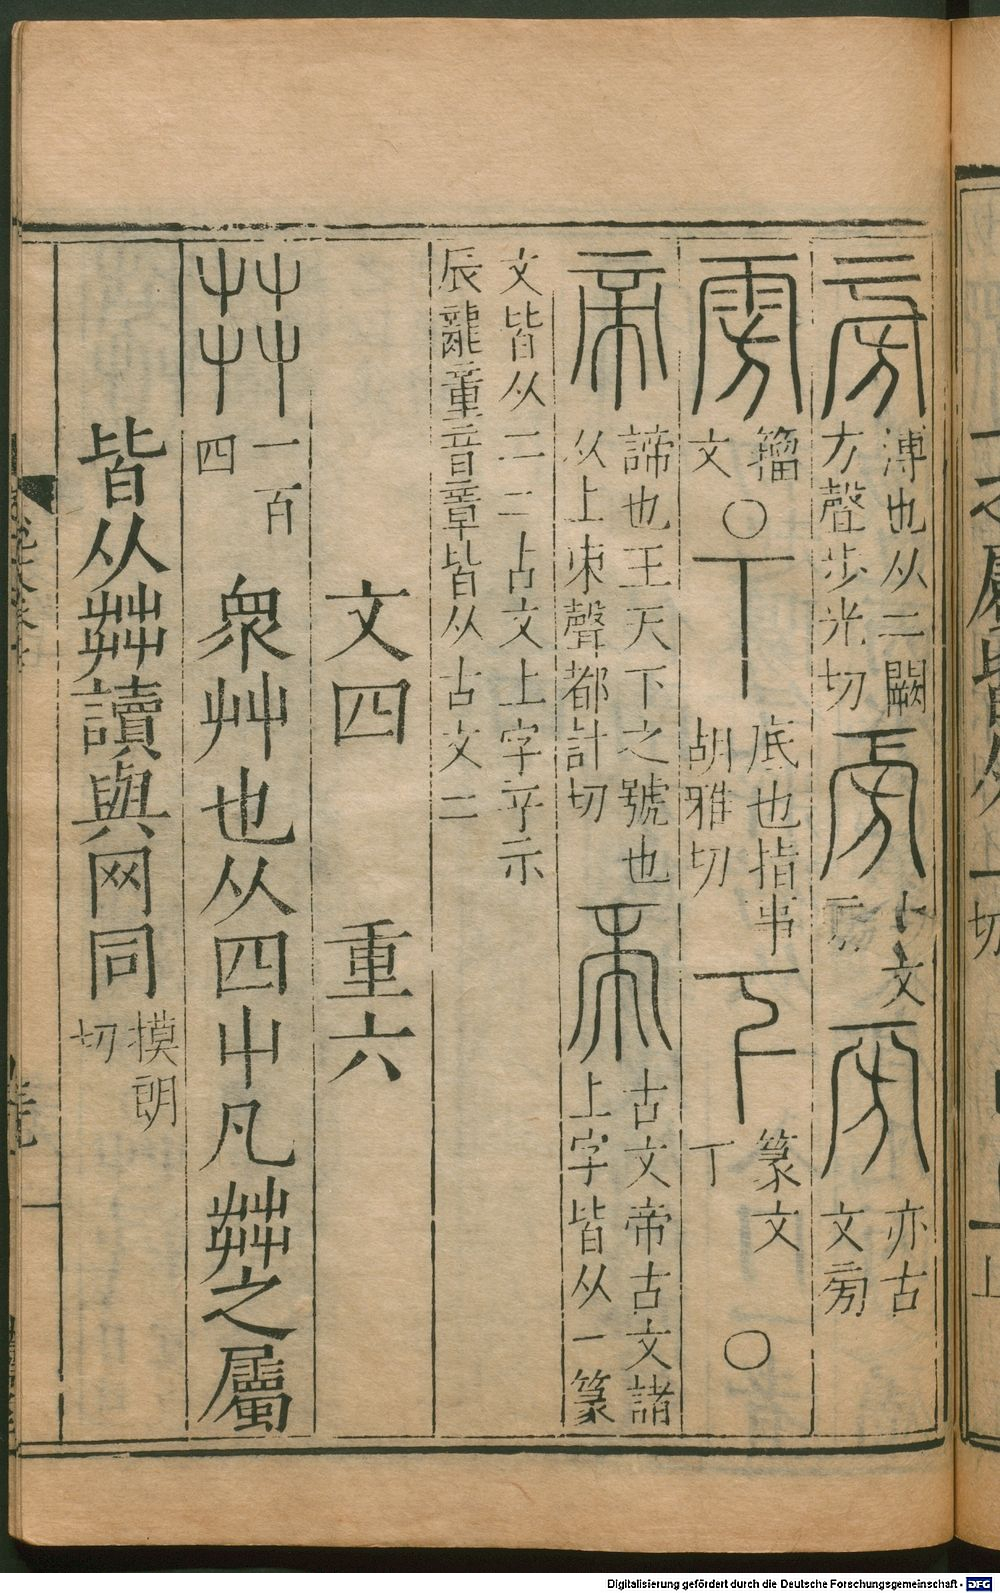 旁 溥也从二闕方聲步光切 㫄 古文旁 㫄 亦古文旁
雱 籀文 〇 丅 底也指事胡雅切 丆 篆文丅 〇
帝 諦也王天下之號也从上朿聲都計切 帝 古文帝古文諸上字皆从一篆
文皆从二二古文上字䇂示辰龍童音章皆从古文二
文四 重六
茻 一百四 眾艸也从四屮凡茻之屬
皆从茻讀與网同 摸朗切
Digitalisierung gefördert durch die Deutsche Forschungsgemeinschaft - DFG